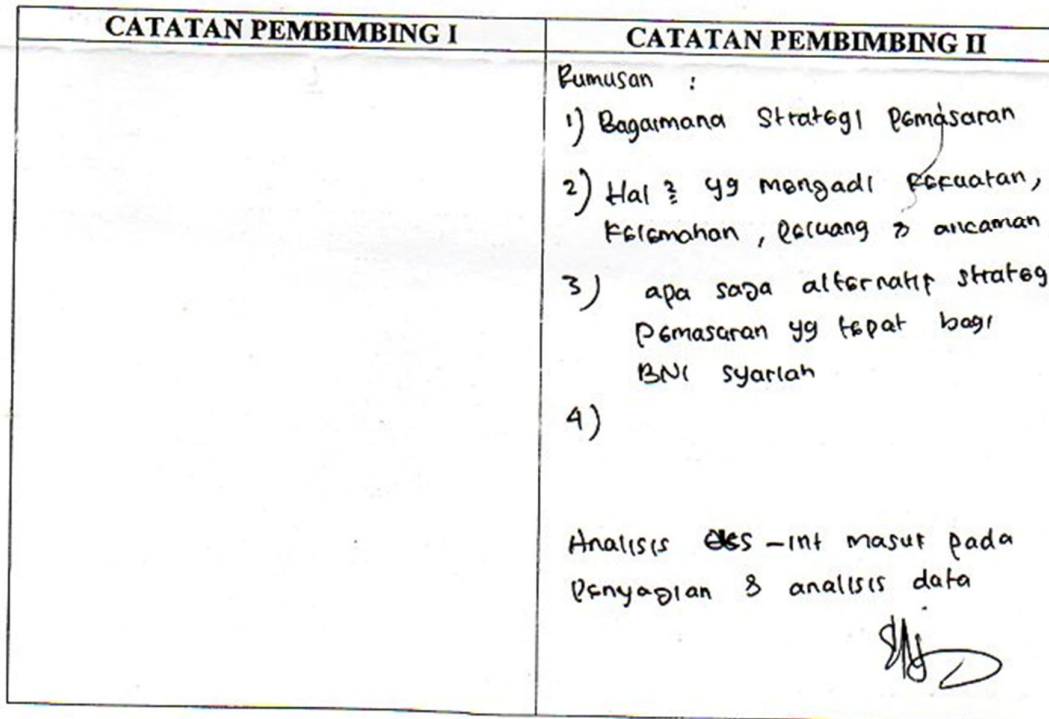 CATATAN PEMBIMBING I
CATATAN PEMBIMBING II
Rumusan :
1) Bagaimana Strategi Pemasaran
2) Hal 2 yg mengadi kekuatan,
kelemahan, peluang & ancaman
3) apa saja alternatif strateg
pemasaran yg tepat bagi
BNI syariah
4)
Analisis -int masuk pada
penyajian & analisis data